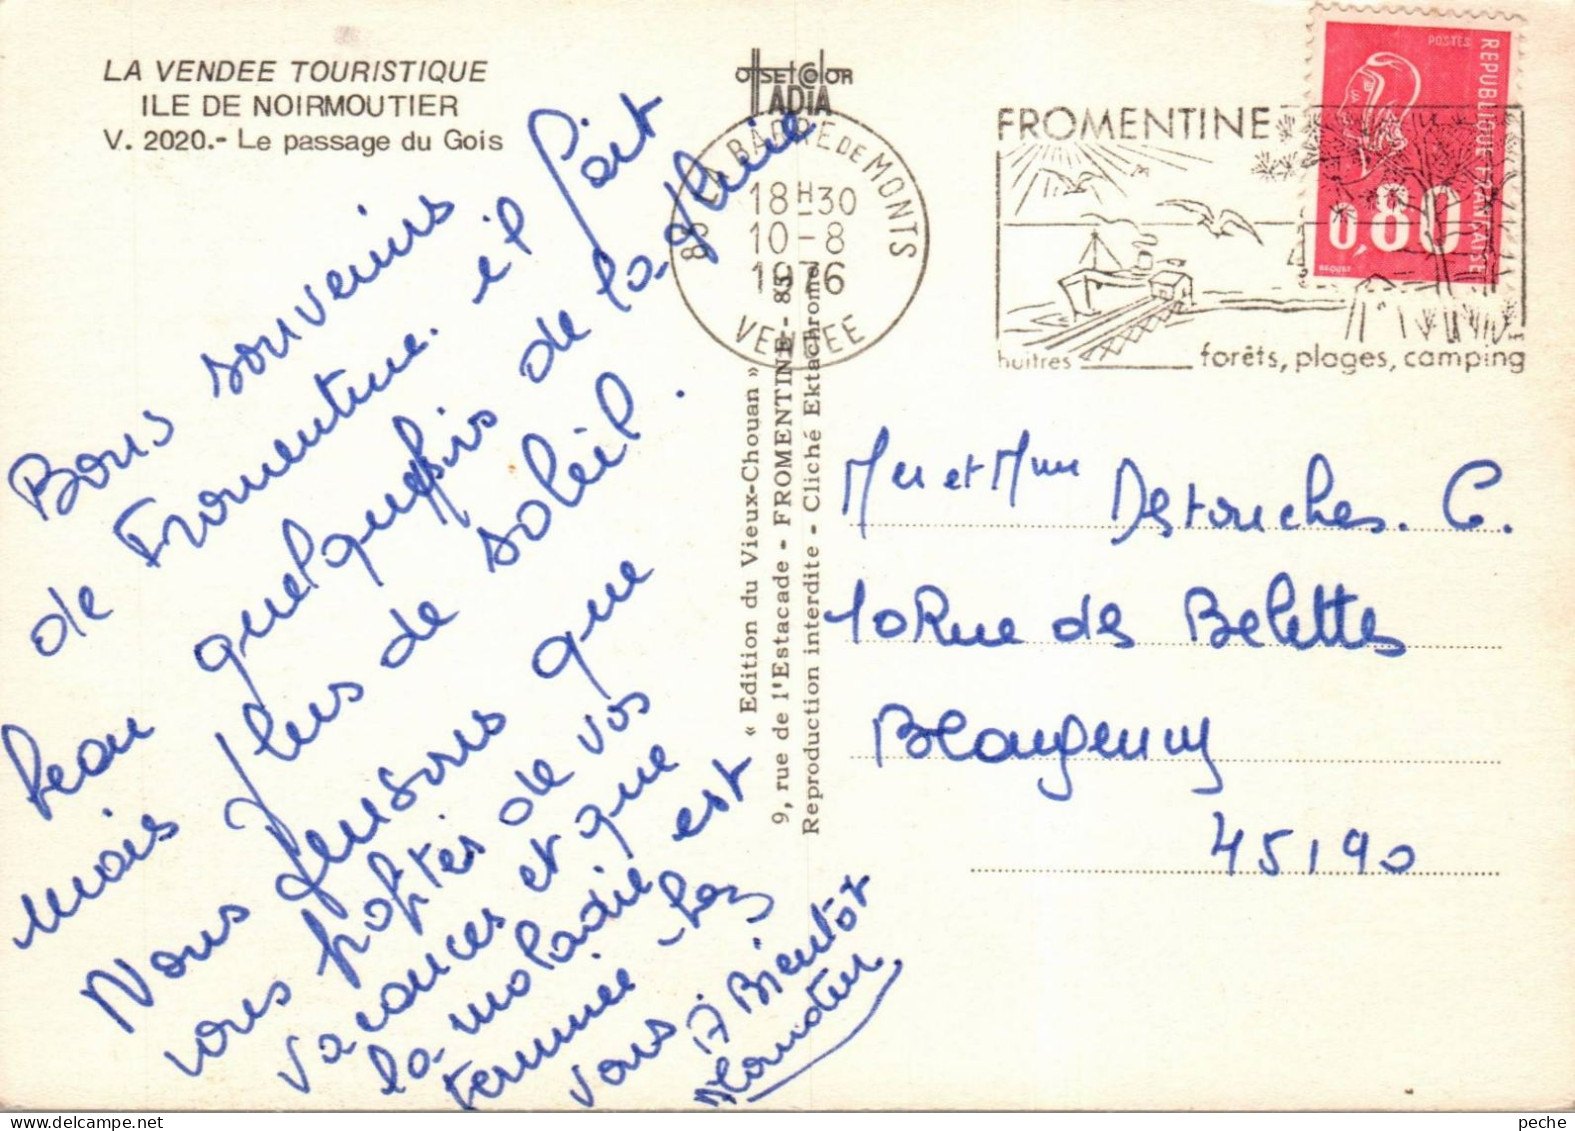 LA VENDEE TOURISTIQUE
ILE DE NOIRMOUTIER
V. 2020.- Le passage du Gois
offsetcolor
ADIA
85 LA BARRE DE MONTS
18H30
10-8
1976
VENDEE
FROMENTINE
huîtres forêts, plages, camping
POSTES
REPUBLIQUE FRANÇAISE
0,80
BEQUET
Bons souvenirs
de Fromentine. il fait
beau quelquefois de la pluie
mais plus de soleil.
Nous pensons que
vous profitez de vos
vacances et que
la maladie est
terminée chez
vous. A Bientôt
« Edition du Vieux-Chouan »
9, rue de l'Estacade - FROMENTINE - 85
Reproduction interdite - Cliché Ektachrome
Mer et Mme Destouches. C.
10 Rue des Belettes
Beaugency
45190
peche